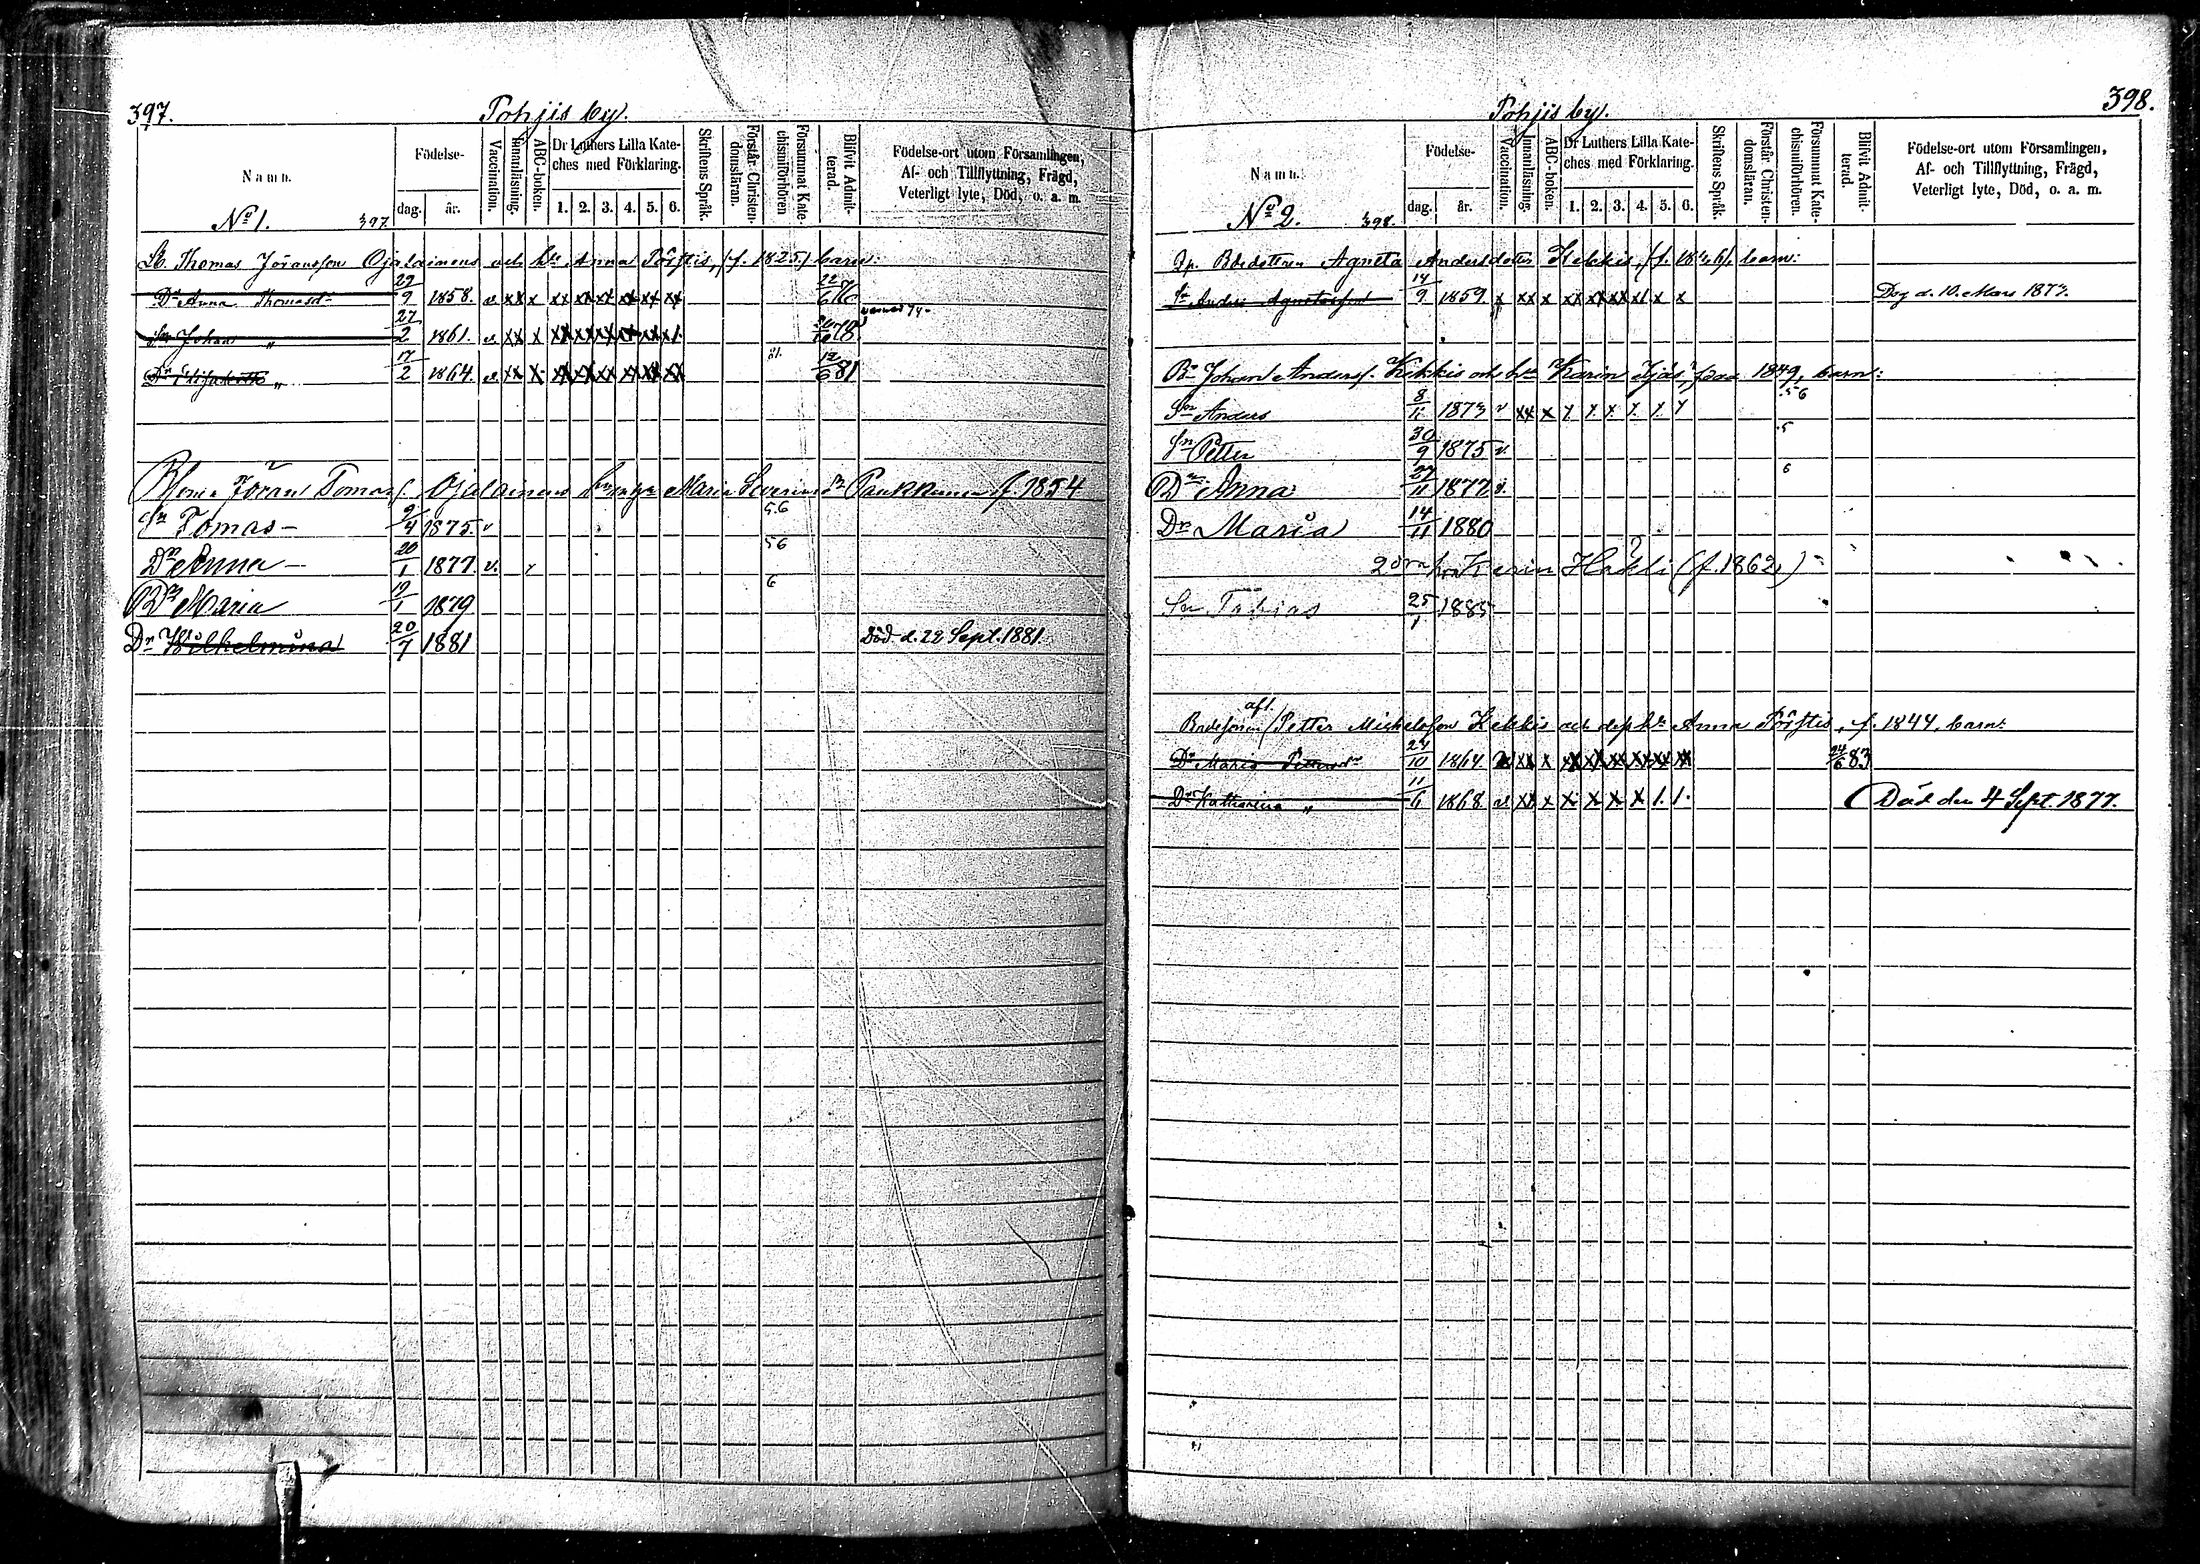 397.
Pohjis by.
Namn.
Födelse-
dag.
år.
Vaccination.
Innanläsning.
ABC-boken.
Dr Luthers Lilla Kate-
ches med Förklaring.
1. 2. 3. 4. 5. 6.
Skriftens Språk.
Förstår Christen-
domsläran.
Försummat Kate-
chismiförhören
Blifvit Admit-
terad.
Födelse-ort utom Församlingen,
Af- och Tillflyttning, Frägd,
Veterligt lyte, Död, o. a. m.
No 1. 397.
Thomas Jöransson Ojalainens och hu Anna Pörstis, (f. 1825) barn:
Dr Anna Thomasdr 29/9 1858. v. xx x xx xx xx xx xx xx 22/6 76
Sn Johan " 27/2 1861. v. xx x 78
Dr Elisabeth " 17/2 1864. v. xx x 81. 12/6 81
Jöran Tomasf. Ojalainens Maria Severins dr Paukkunen f. 1854
Sn Tomas — 9/4 1875. v 5.6
Dr Anna — 20/1 1877. v. 56
Dr Maria 1879 6
Dr Wilhelmina 20/7 1881 Död d. 22 Sept. 1881.
398.
Pohjis by.
Namn.
Födelse-
dag.
år.
Vaccination.
Innanläsning.
ABC-boken.
Dr Luthers Lilla Kate-
ches med Förklaring.
1. 2. 3. 4. 5. 6.
Skriftens Språk.
Förstår Christen-
domsläran.
Försummat Kate-
chismiförhören.
Blifvit Admit-
terad.
Födelse-ort utom Församlingen,
Af- och Tillflyttning, Frägd,
Veterligt lyte, Död, o. a. m.
No 2. 398.
Agneta Andersdotter Kekkis, barn:
Sn Anders Agnetasson 14/9 1859 x xx x xx xx xx x x x Dog d. 10. Mars 1873.
Johan Andersf. Kekkis och hu Karin 1849, barn:
Sn Anders 8/11 1873 v xx x 56
Sn Petter 30/9 1875 v. 5
Dr Anna 27/11 1877 v. 6
Dr Maria 14/11 1880
2dra hu Karin Hakli (f. 1862)
Sn Tobias 25/1 1885
afl.
Bondesonen Petter Mickelsson Kekkis och dess hu Anna Pörstis, f. 1844, barn:
Dr Maria Pettersdr 24/10 1864 24/6 83
Dr Katharina " 11/6 1868 v. xx x x x x x 1. 1. Död den 4 Sept. 1877.